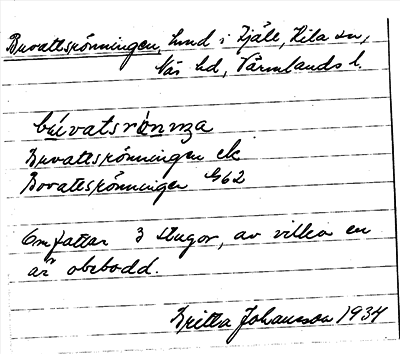 Buvattsrönningen, hmd i Fjäle, Kila sn,
Näs hd, Värmlands l.
bʉ́vatsrönnɪŋa
Buvattsrönningen ek
Bovattsrönningen G62
Omfattar 3 stugor, av vilka en
är obebodd.
Britta Johansson 1934